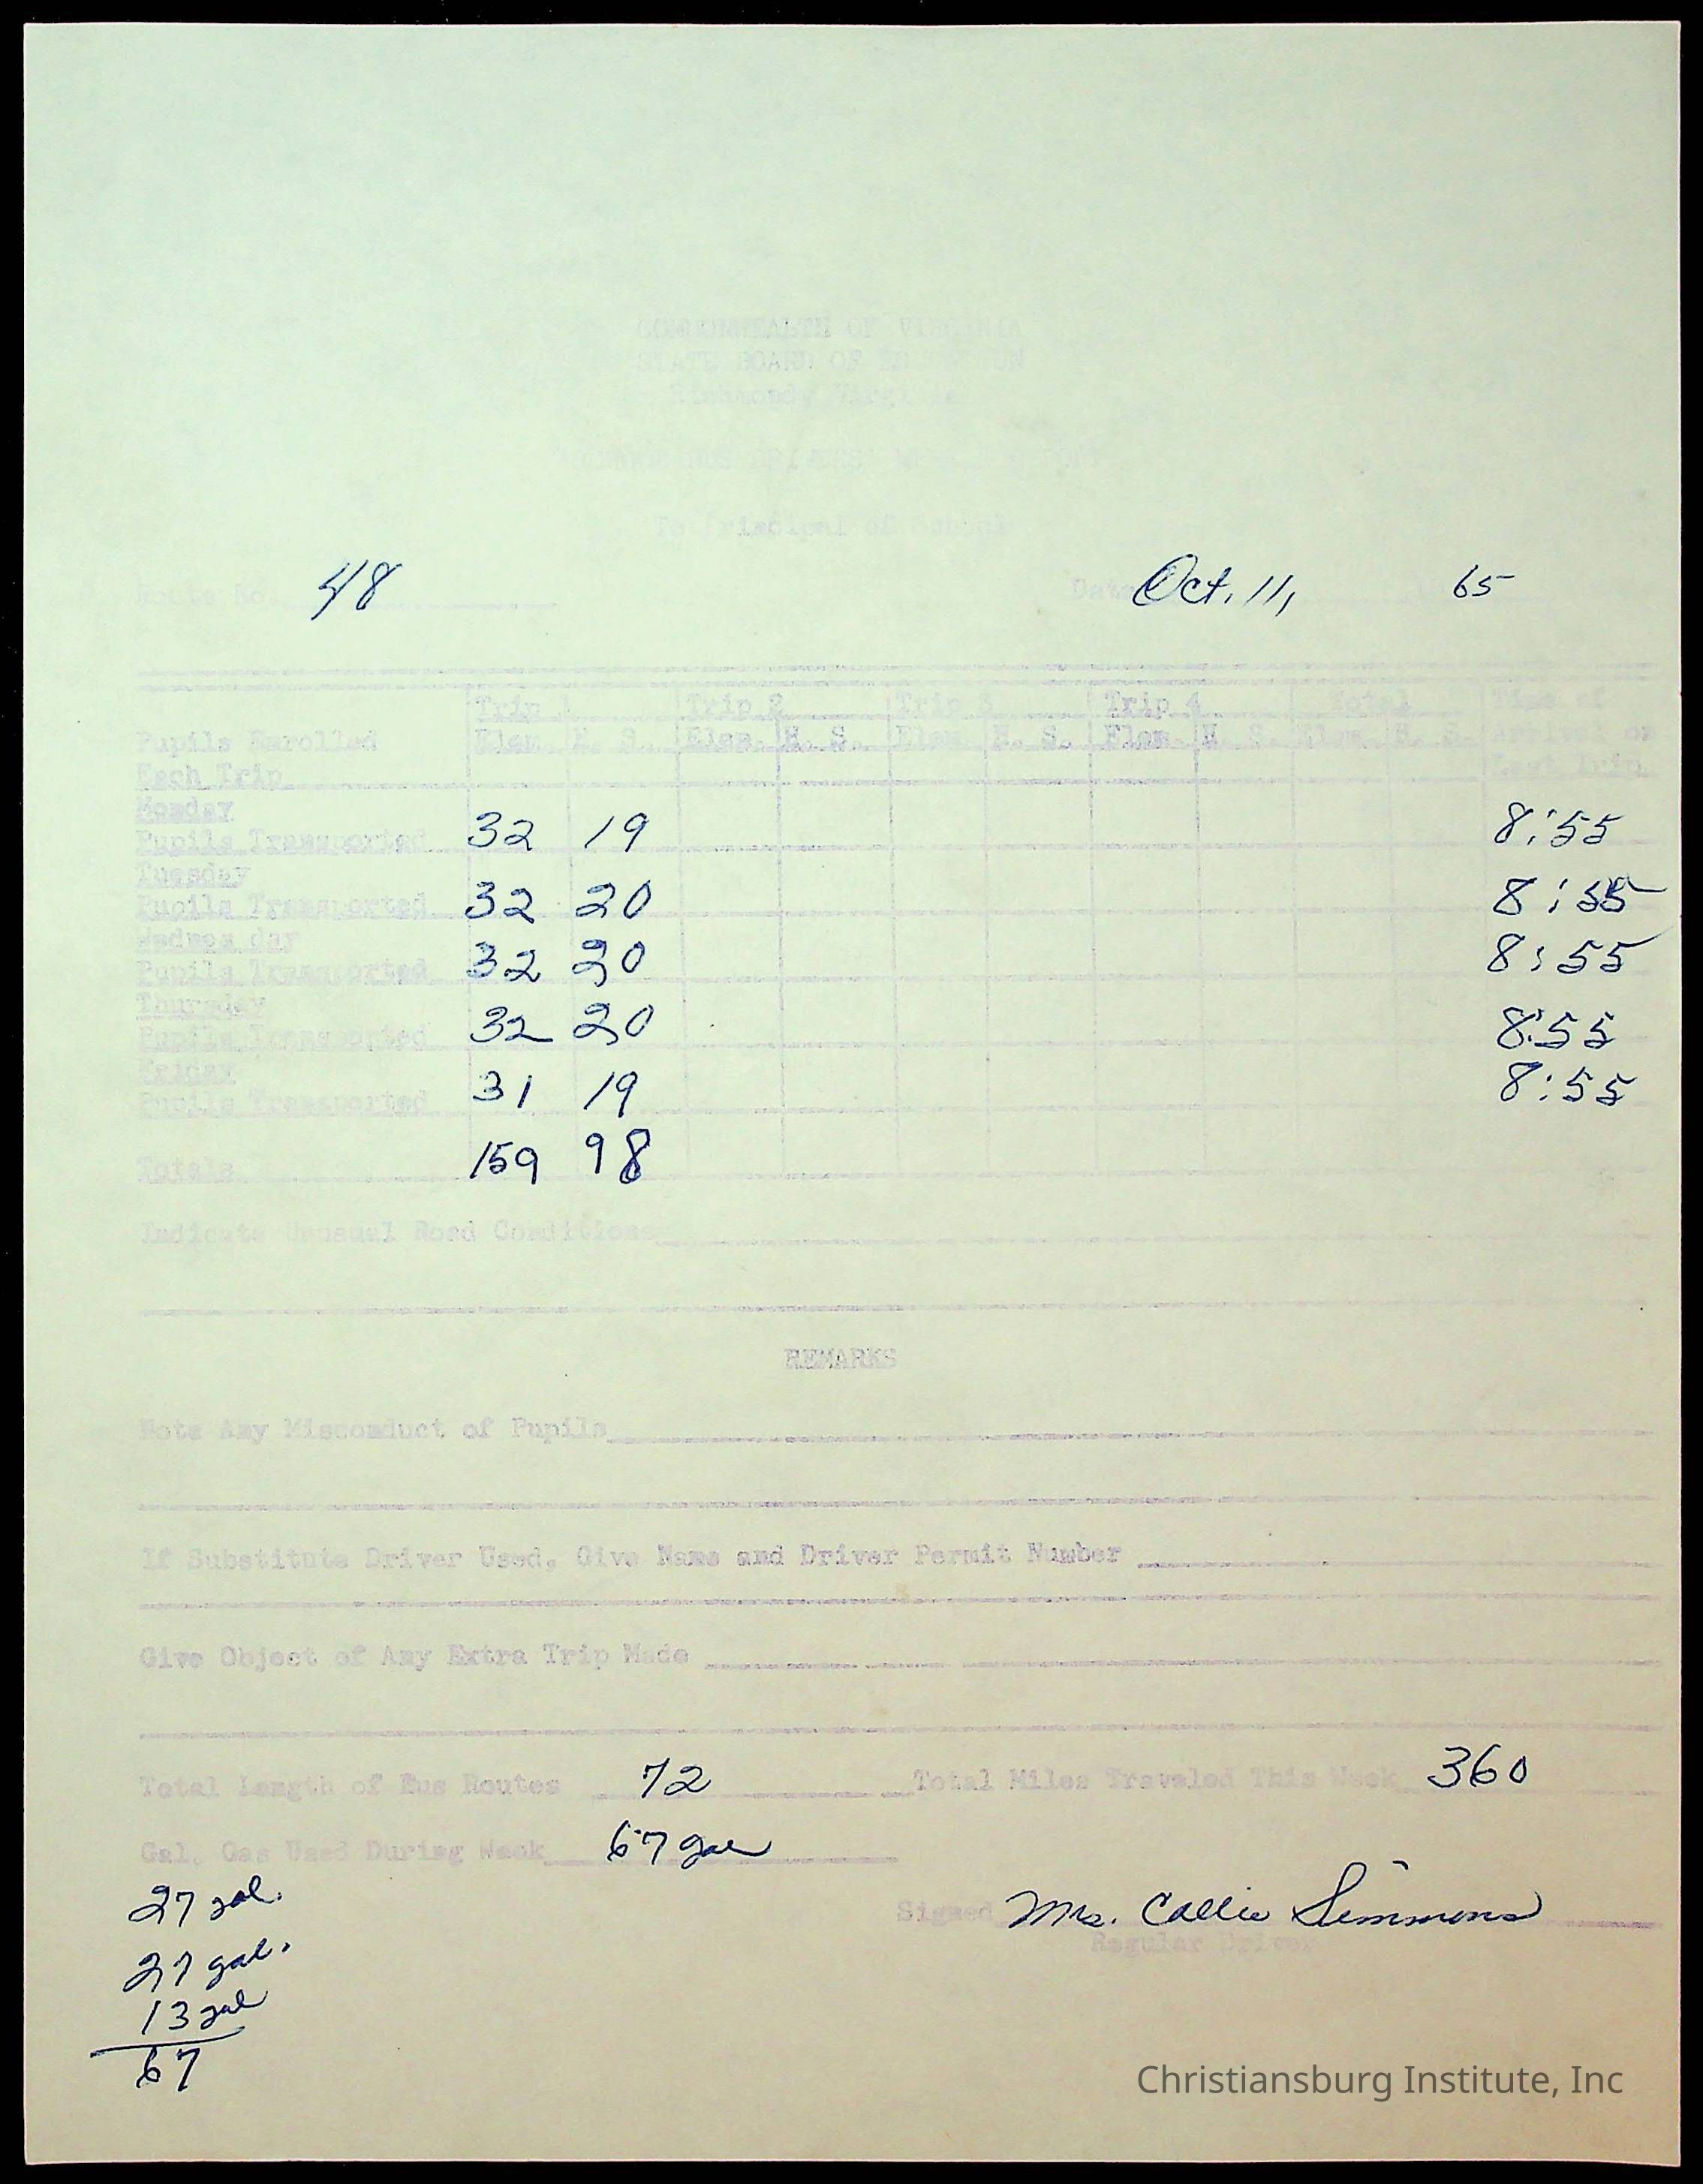 COMMONWEALTH OF VIRGINIA
STATE BOARD OF EDUCATION
Richmond, Virginia
To Principal of School
Route No. 48 Date Oct. 11, 65
Trip 1 Trip 2 Trip 3 Trip 4 Total Time of
Pupils Enrolled Elem. H. S. Elem. H. S. Elem. H. S. Elem. H. S. Elem. H. S. Arrival on
Each Trip Last Trip
Monday
Pupils Transported 32 19 8:55
Tuesday
Pupils Transported 32 20 8:55
Wednesday
Pupils Transported 32 20 8:55
Thursday
Pupils Transported 32 20 8:55
Friday
Pupils Transported 31 19 8:55
Totals 159 98
Indicate Unusual Road Conditions
REMARKS
Note Any Misconduct of Pupils
If Substitute Driver Used, Give Name and Driver Permit Number
Give Object of Any Extra Trip Made
Total Length of Bus Routes 72 Total Miles Traveled This Week 360
Gal. Gas Used During Week 67 gal
27 gal.
Signed Mrs. Callie Simmons
Regular Driver
27 gal.
13 gal
67
Christiansburg Institute, Inc